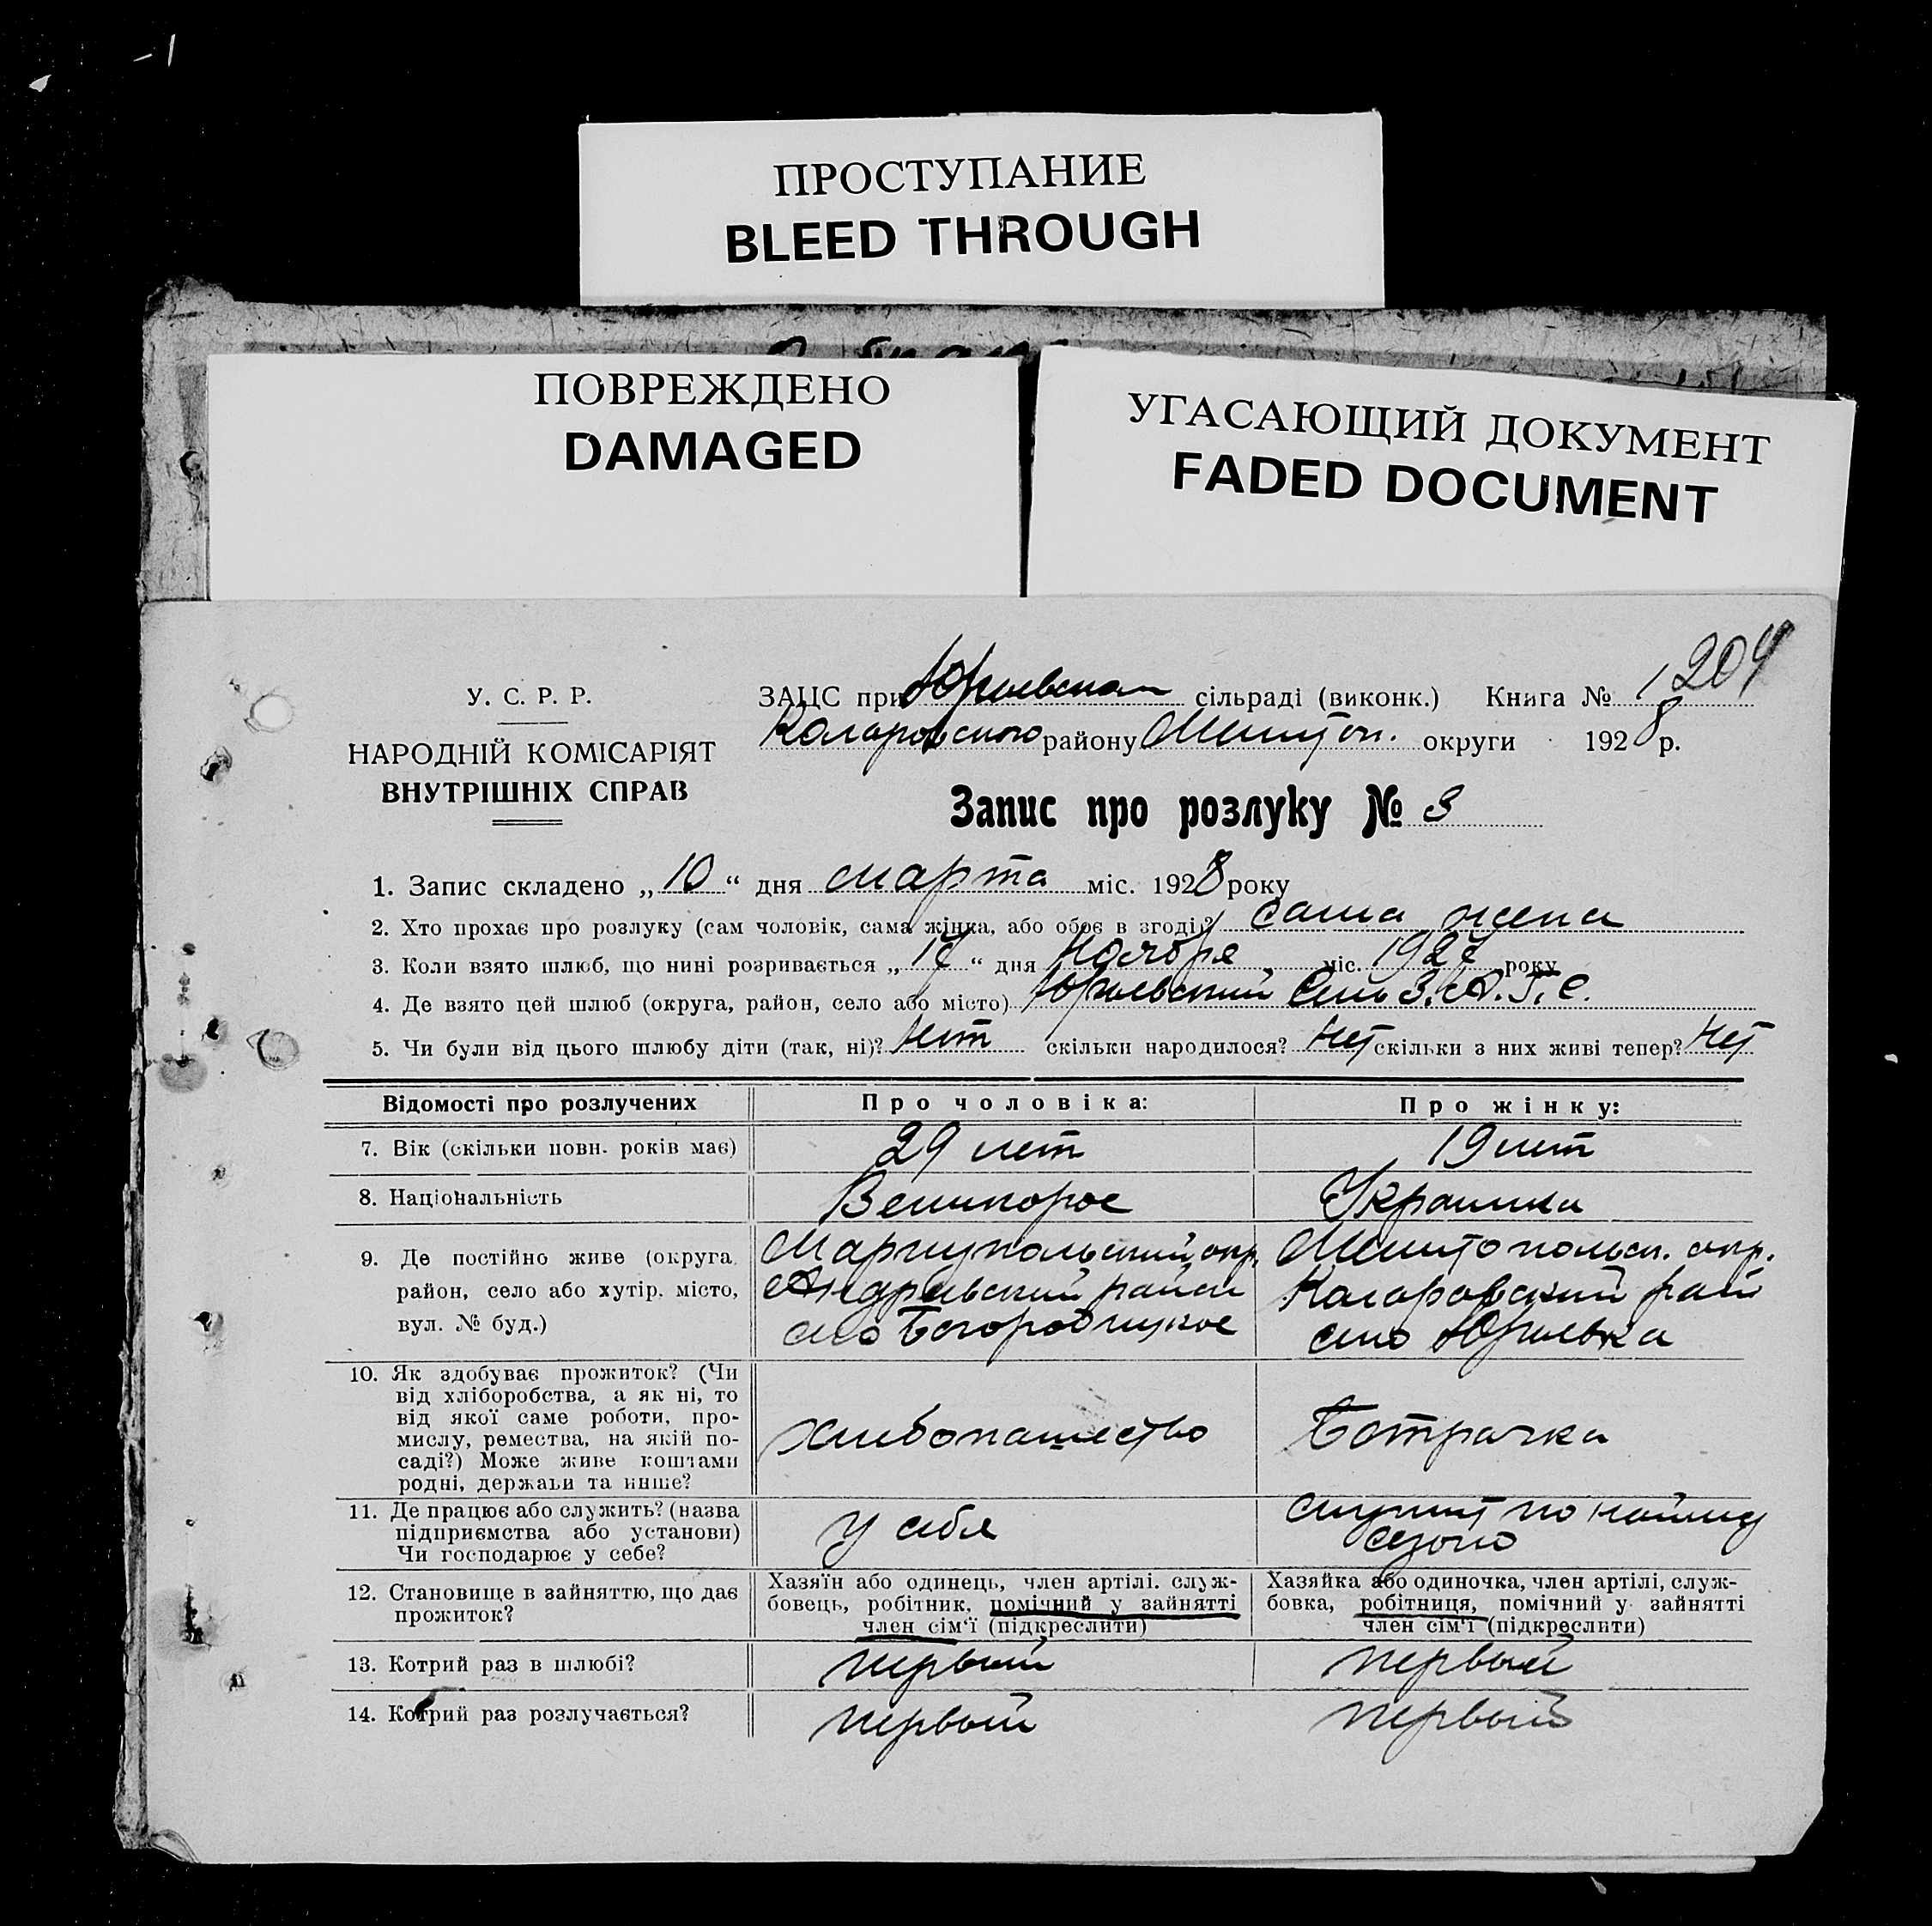 ПРОСТУПАНИЕ
BLEED THROUGH
ПОВРЕЖДЕНО
DAMAGED
УГАСАЮЩИЙ ДОКУМЕНТ
FADED DOCUMENT
204
У. С. Р. Р.
НАРОДНІЙ КОМІСАРІЯТ
ВНУТРІШНІХ СПРАВ
ЗАЦС при Юрьевском сільраді (виконк.) Книга № 1
Коларовского району Мелитоп. округи 1928 р.
Запис про розлуку № 3
1. Запис складено „10“ дня марта міс. 1928 року
2. Хто прохає про розлуку (сам чоловік, сама жінка, або обоє в згоді?) сама жена
3. Коли взято шлюб, що нині розривається „17“ дня Ноября міс. 1927 року
4. Де взято цей шлюб (округа, район, село або місто) Юрьевский Сель З.А.Г.С.
5. Чи були від цього шлюбу діти (так, ні)? Нет скільки народилося? Нет скільки з них живі тепер? Нет
Відомості про розлучених Про чоловіка: Про жінку:
7. Вік (скільки повн. років має) 29 лет 19 лет
8. Національність Великорос Украинка
9. Де постійно живе (округа, район, село або хутір, місто, вул. № буд.)
Мариупольский окр.
Андреевский район
село Богородицкое
Мелитопольск. окр.
Коларовский рай
село Юрьевка
10. Як здобуває прожиток? (Чи
від хліборобства, а як ні, то
від якої саме роботи, про-
мислу, ремества, на якій по-
саді?) Може живе коштами
родні, держави та инше?
хлебопашество
Батрачка
11. Де працює або служить? (назва
підприємства або установи)
Чи господарює у себе?
у себя
служит по найму
сезоно
12. Становище в зайняттю, що дає
прожиток?
Хазяїн або одинець, член артілі. служ-
бовець, робітник, помічний у зайнятті
член сім'ї (підкреслити)
Хазяйка або одиночка, член артілі, служ-
бовка, робітниця, помічний у зайнятті
член сім'ї (підкреслити)
13. Котрий раз в шлюбі? первый первый
14. Котрий раз розлучається? первый первый